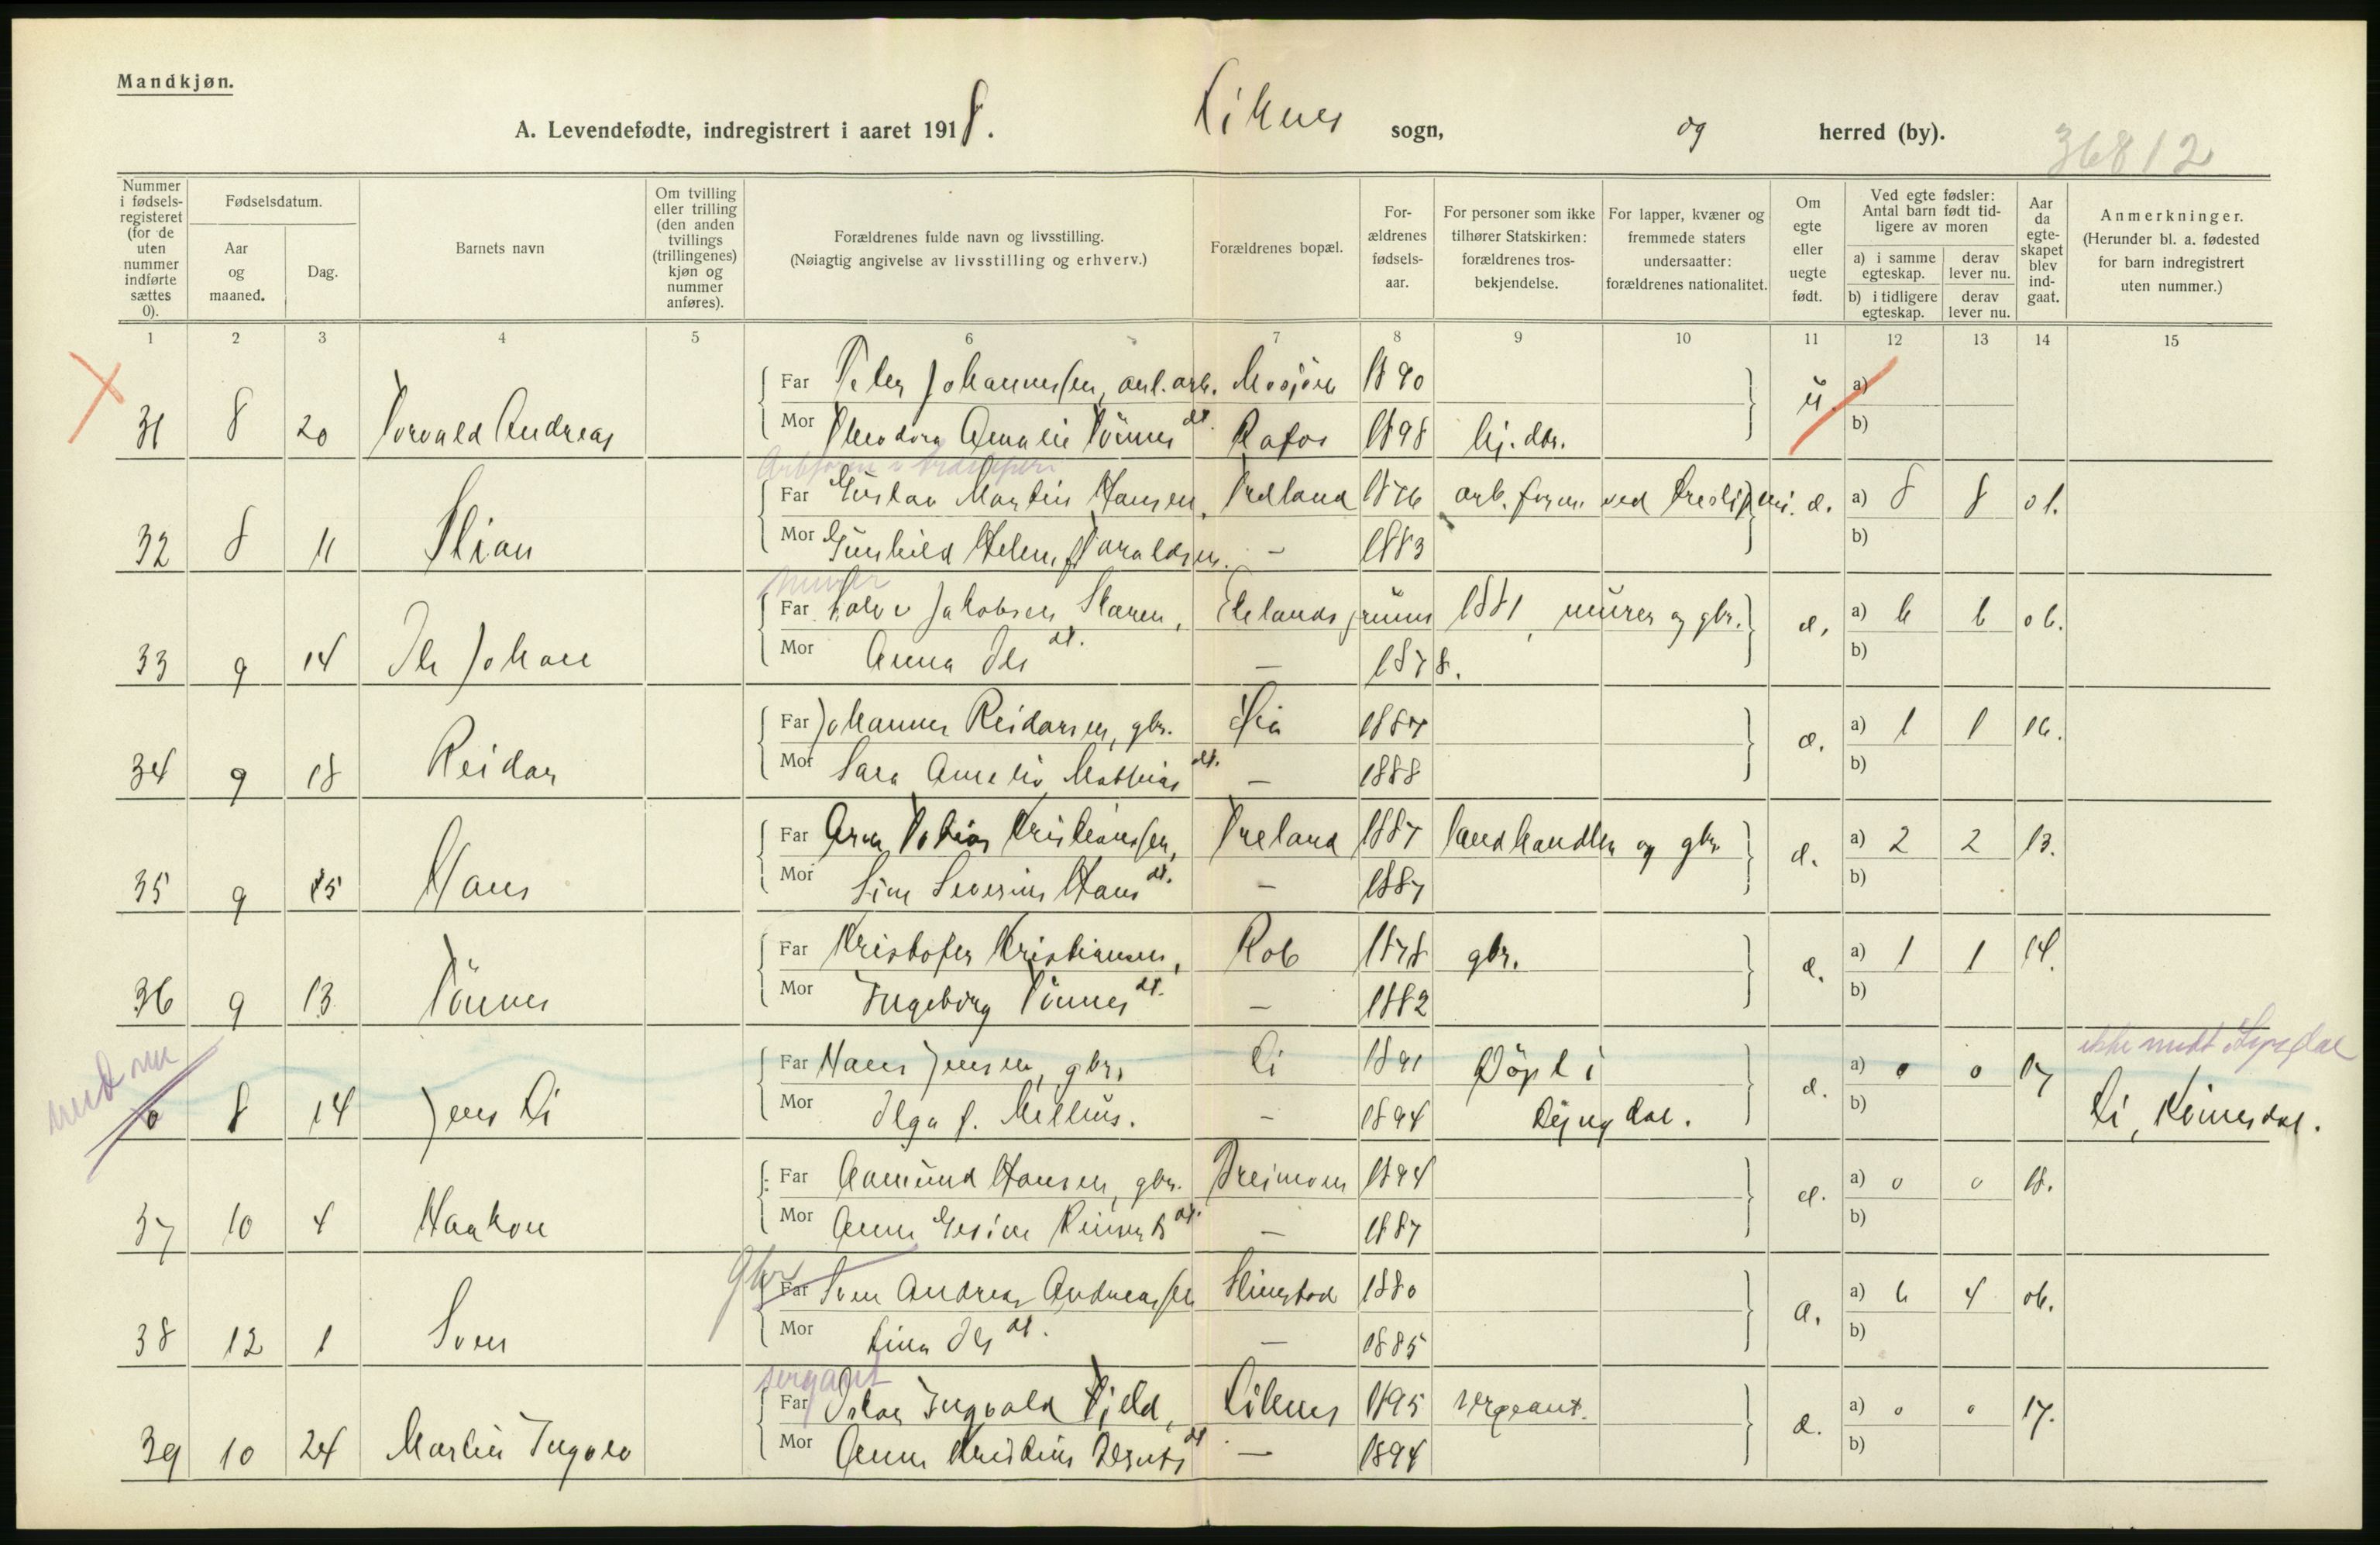 Mandkjøn.
A. Levendefødte, indregistrert i aaret 1918. Liknes sogn, og herred (by).
36812
Nummer i fødsels-registeret (for de uten nummer indførte sættes 0).
Fødselsdatum.
Aar og maaned.
Dag.
Barnets navn
Om tvilling eller trilling (den anden tvillings (trillingenes) kjøn og nummer anføres).
Forældrenes fulde navn og livsstilling.
(Nøiagtig angivelse av livsstilling og erhverv.)
Forældrenes bopæl.
For-ældrenes fødsels-aar.
For personer som ikke tilhører Statskirken: forældrenes tros-bekjendelse.
For lapper, kvæner og fremmede staters undersaatter: forældrenes nationalitet.
Om egte eller uegte født.
Ved egte fødsler: Antal barn født tid-ligere av moren
a) i samme egteskap. derav lever nu.
b) i tidligere egteskap. derav lever nu.
Aar da egte-skapet blev ind-gaat.
Anmerkninger.
(Herunder bl. a. fødested for barn indregistrert uten nummer.)
1 2 3 4 5 6 7 8 9 10 11 12 13 14 15
Far Peder Johannessen, anl. arb. Mosjøen 1890 a)
31 8 20 Torvald Andreas Mor Theodora Amalie Tönnesdt. Rafos 1898 hj. dtr. u. b)
Far Gustav Martin Hansen, Træland 1876 arb. form. ved e. a) 8 8 01.
32 8 11 Stian Mor Gunhild Helene Taraldsen. — 1883 b)
murer
Far Jakobsen Staren, 1881, murer og gbr. e. a) 6 6 06.
33 9 14 Ole Johan Mor Anna Olsdt. — 1878. b)
Far Johannes Reidarsen, gbr. 1887 e. a) 1 1 16.
34 9 18 Reidar Mor Sara Amalie Mathiasdt. — 1888 b)
Far Arne Tobias Kristiansen, Træland 1887 landhandler og gbr. e. a) 2 2 13.
35 9 15 Hans Mor Sine Severine Hansdt. — 1887 b)
Far Kristofer Kristiansen, Rob 1878 gbr. e. a) 1 1 14.
36 9 13 Tönnes Mor Ingeborg Tönnesdt. — 1882 b)
Far Hans Jensen, gbr. Li 1891 Döpt i e. a) 0 0 17
0 8 14 Jens Li Mor Olga f. Mellus. — 1894 Lyngdal. b) Li, Kvinesdal.
Far Aamund Hansen, gbr. Treimoen 1894 e. a) 0 0 18.
37 10 4 Haakon Mor Anne Gesine — 1887 b)
gbr
Far Sven Andreas Andreassen Slimestad 1880 e. a) 6 4 06.
38 12 1 Sven Mor Lina Olsdt. — 1885 b)
sergant
Far Oskar Ingvald Fjeld, Liknes 1895 sergeant. e. a) 0 0 17.
39 10 24 Martin Ingvald Mor Anne Kristine — 1894 b)